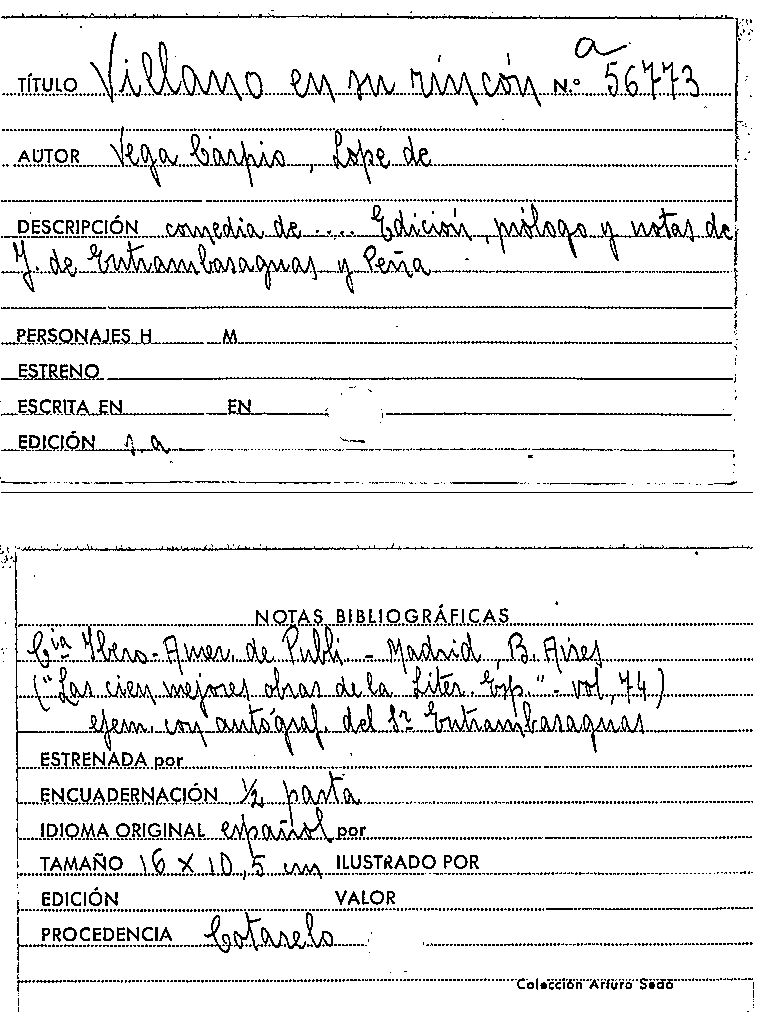 a
TÍTULO Villano en su rincón N.º 56773
AUTOR Vega Carpio, Lope de
DESCRIPCIÓN comedia de .... Edición, prólogo y notas de
J. de Entrambasaguas y Peña
PERSONAJES H M
ESTRENO
ESCRITA EN EN
EDICIÓN s.a
NOTAS BIBLIOGRÁFICAS
Cia Ibero-Amer. de Publi. - Madrid, B. Aires
("Las cien mejores obras de la Liter. Esp." - vol, 74)
ejem. con autógraf. del Sr Entrambasaguas
ESTRENADA por
ENCUADERNACIÓN ½ pasta
IDIOMA ORIGINAL español por
TAMAÑO 16 x 10,5 cm ILUSTRADO POR
EDICIÓN VALOR
PROCEDENCIA Cotarelo
Colección Arturo Sedó